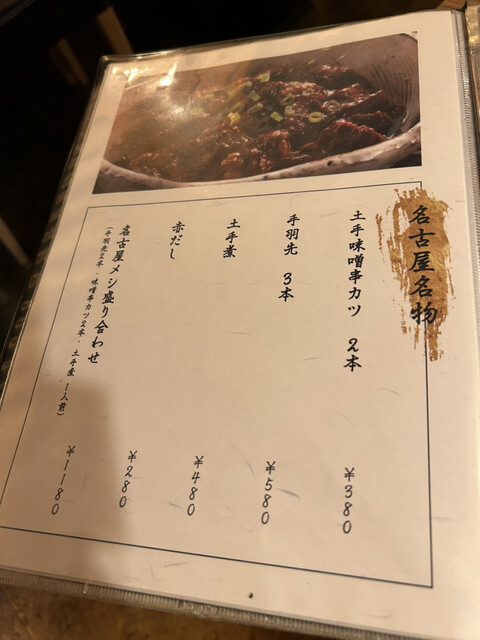 名古屋名物
土手味噌串カツ 2本 ¥380
手羽先 3本 ¥580
土手煮 ¥480
赤だし ¥280
名古屋メシ盛り合わせ ¥1180
(手羽先2本・味噌串カツ2本・土手煮 1人前)